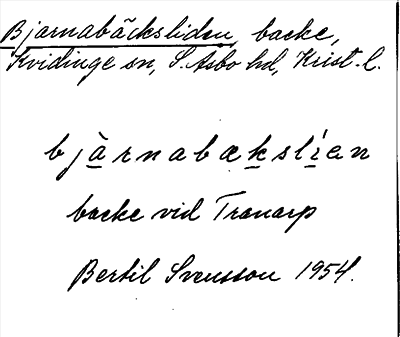 Bjarnabäcksliden, backe,
Kvidinge sn, S. Åsbo hd, Krist. l.
bjàrnabækslíen
backe vid Tranarp
Bertil Svensson 1954.